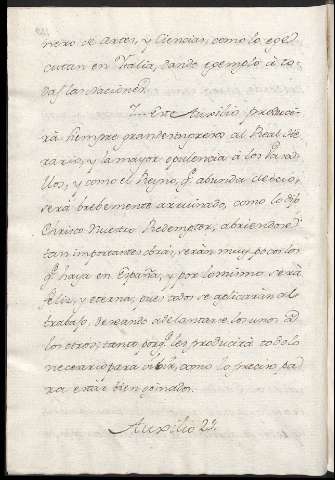 nero de Artes, y Ciencias, como lo egе-
cutan en Italia, dando egemplo â to-
das las Naciones.
7... Este Auxilio, produci-
rà siempre grandes ingresos al Real He-
rario, y la mayor opulencia â los Vasa-
llos, y como el Reyno, q.e abunda de ocio,
será brebemente arruinado, como lo dijo
Christo Nuestro Redemptor, abriendose
tan importantes obras, seràn muy pocos los
q.e haya en España, y por lo mismo serà
feliz, y eterna, pues todos se aplicaràn al
trabajo, deseando adelantarse los unos â
los otros, tanto porq.e les producirà todo lo
necesario para vivir, como lo preciso pa-
ra estàr bien
Auxilio 22.